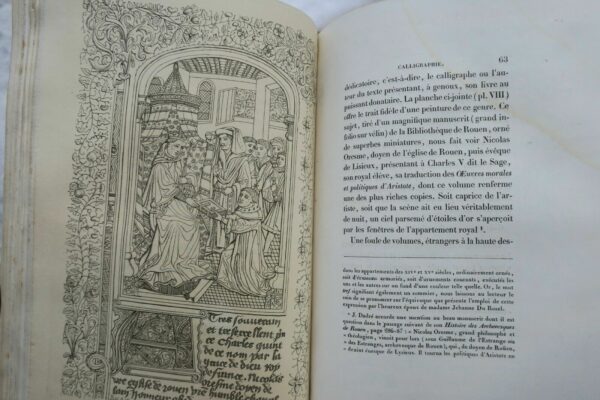 Tres souverain
et
Charles quint
de ce nom par la
grace de dieu roy
de france. Nicolas
oresme doyen de
vre eglise de rouen vre humble
CALLIGRAPHIE.
63
dédicatoire, c'est-à-dire, le calligraphe ou l'au-
teur du texte présentant, à genoux, son livre au
puissant donataire. La planche ci-jointe (pl. VIII)
offre le trait fidèle d'une peinture de ce genre. Ce
sujet, tiré d'un magnifique manuscrit (grand
in-folio sur vélin) de la Bibliothèque de Rouen, orné
de superbes miniatures, nous fait voir Nicolas
Oresme, doyen de l'église de Rouen, puis évêque
de Lisieux, présentant à Charles V dit le Sage,
son royal élève, sa traduction des OEuvres morales
et politiques d'Aristote, dont ce volume renferme
une des plus riches copies. Soit caprice de l'ar-
tiste, soit que la scène ait eu lieu véritablement
de nuit, un ciel parsemé d'étoiles d'or s'aperçoit
par les fenêtres de l'appartement royal
Une foule de volumes, étrangers à la haute des-
dans les appartements des XIVe et XVe siècles, ordinairement ornés,
soit d'écussons armoriés, soit d'ornements courants, exécutés les
uns et les autres sur un fond d'une couleur telle quelle. Or, le mot
signifiant également un sommier, nous laissons au lecteur le
soin de se prononcer sur l'équivoque que présente l'emploi de cette
expression par l'heureux époux de madame Jehanne Du Bosel.
accorde une mention au beau manuscrit dont il est
question dans le passage suivant de son Histoire des Archevesques
de Rouen, page « Nicolas Oresme, grand philosophe et
théologien, vivoit pour lors (sous Guillaume de l'Estrange ou
des Estranges, archevesque de Rouen); qui, de doyen de Roüen,
évesque de Lysieux. Il tourna les politiques d'Aristote en